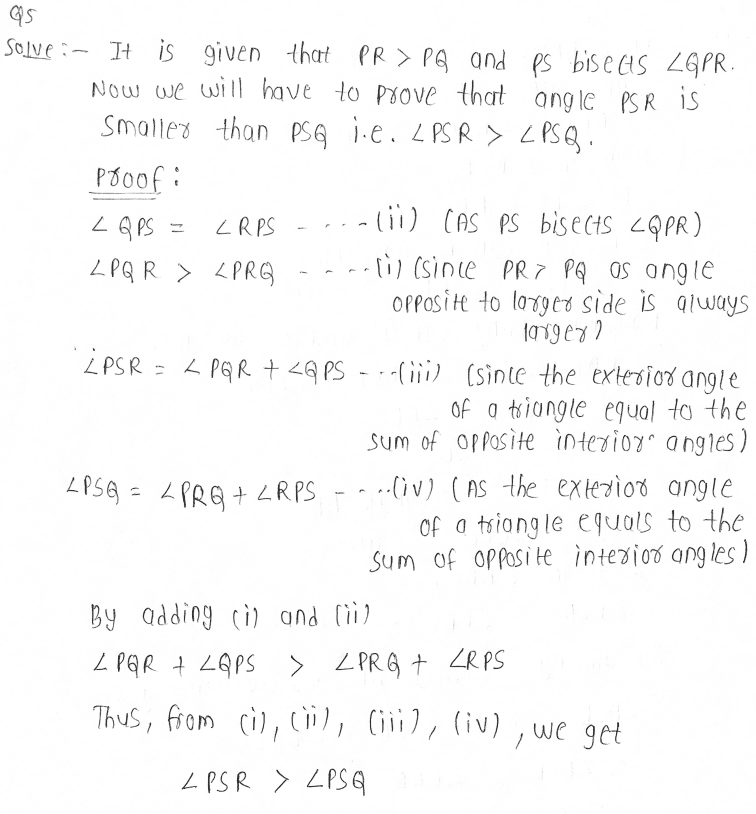 Q5
Solve :- It is given that PR > PQ and PS bisects ∠QPR.
Now we will have to prove that angle PSR is
smaller than PSQ i.e. ∠PSR > ∠PSQ.
Proof :
∠QPS = ∠RPS - ... - (ii) (As PS bisects ∠QPR)
∠PQR > ∠PRQ - - - - (i) (since PR > PQ as angle
opposite to larger side is always
larger)
∠PSR = ∠PQR + ∠QPS - - - (iii) (since the exterior angle
of a triangle equal to the
sum of opposite interior angles)
∠PSQ = ∠PRQ + ∠RPS - - .. (iv) (As the exterior angle
of a triangle equals to the
sum of opposite interior angles)
By adding (i) and (ii)
∠PQR + ∠QPS > ∠PRQ + ∠RPS
Thus, from (i), (ii), (iii), (iv), we get
∠PSR > ∠PSQ